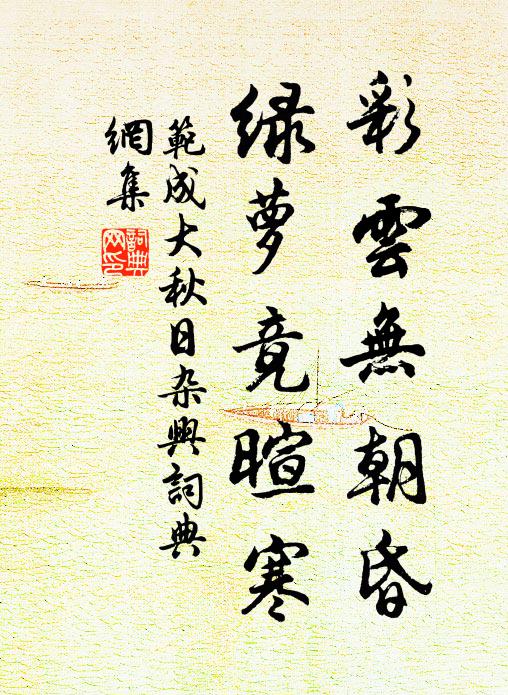 彩雲無朝昏
緑夢竟暄寒
範成大秋日杂興詞典
網集
詞典
网印